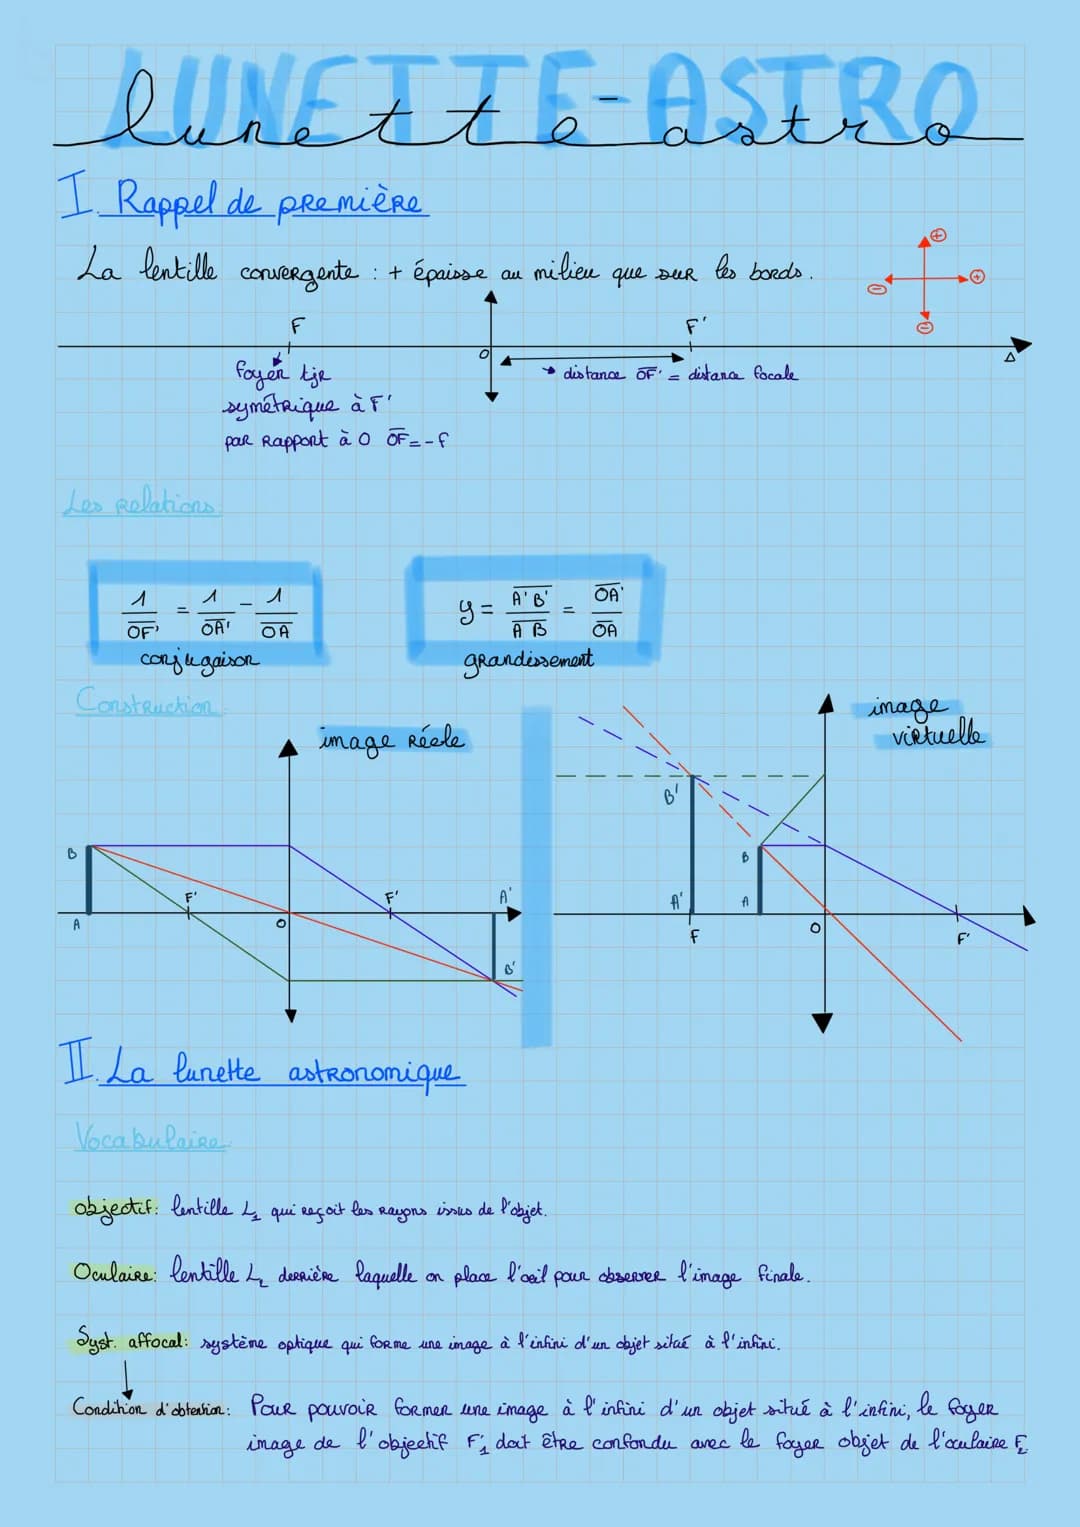 LUNETTE-ASTRO
lunette astro
I. Rappel de première
La lentille convergente : + épaisse au milieu que sur les bords.
F
F'
O
Δ
foyer tjr
symétrique à F'
par rapport à O OF = - f
distance OF' = distance focale
Les relations
1/OF' = 1/OA' - 1/OA
conjugaison
y = A'B'/AB = OA'/OA
grandissement
Construction:
image réele
B
A
F'
O
F'
A'
B'
image
virtuelle
B'
A'
F
B
A
O
F'
II. La lunette astronomique
Vocabulaire
objectif: lentille L1 qui reçoit les rayons issus de l'objet.
Oculaire: lentille L2 derrière laquelle on place l'oeil pour observer l'image finale.
Syst. affocal: système optique qui forme une image à l'infini d'un objet situé à l'infini.
Condition d'obtention: Pour pouvoir former une image à l'infini d'un objet situé à l'infini, le foyer
image de l'objectif F'1 doit être confondu avec le foyer objet de l'oculaire F2